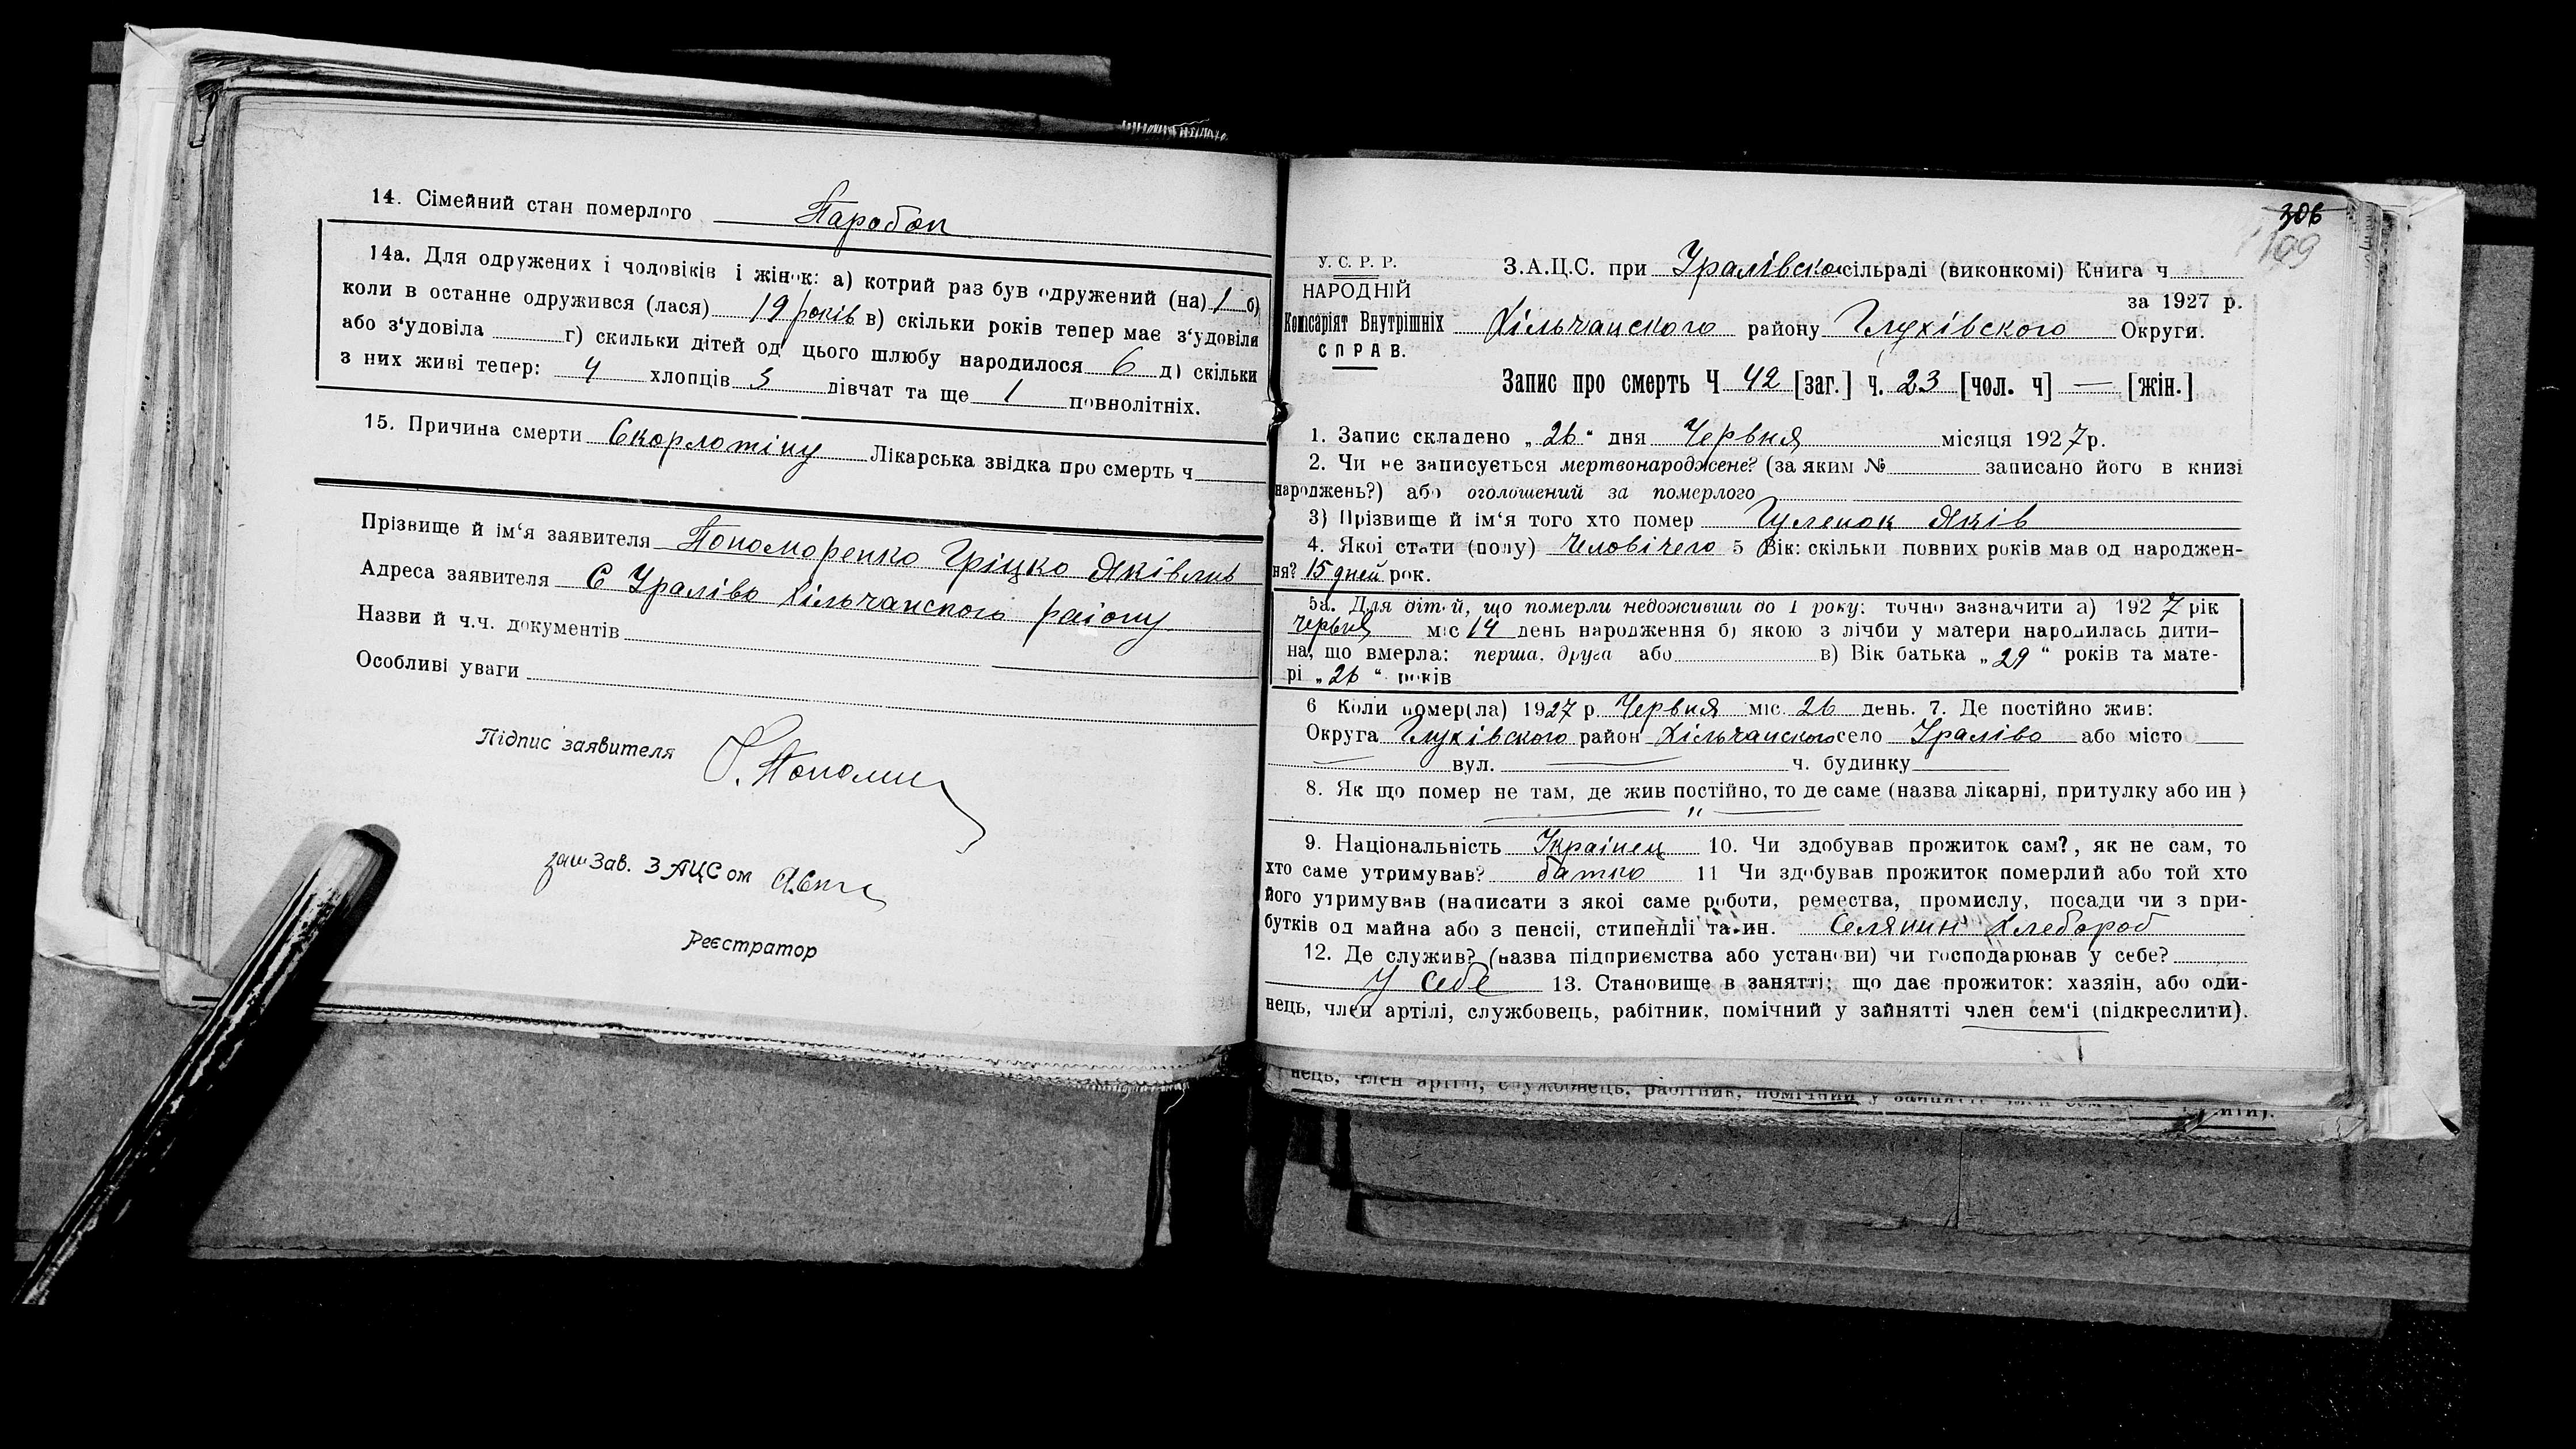 14. Сімейний стан померлого Паробок
14а. Для одружених і чоловіків і жінок: а) котрий раз був одружений (на) 1 б)
коли в останне одружився (лася) 19 років в) скільки років тепер має з‘удовіля
або з‘удовіла г) скильки дітей од цього шлюбу народилося 6 д) скільки
з них живі тепер: 4 хлопців 3 дівчат та ще 1 повнолітніх.
15. Причина смерти Скорлотіну Лікарська звідка про смерть ч
Прізвище й ім‘я заявителя Пономоренко Гріцко Яківлив
Адреса заявителя С Ураліво Хільчанского раіону
Назви й ч.ч. документів
Особливі уваги
Підпис заявителя
Зав. ЗАЦСом
Реєстратор
306
199
У. С. Р. Р.
НАРОДНІЙ
Комісаріят Внутрішніх
СПРАВ.
З.А.Ц.С. при Уралівско сільраді (виконкомі) Книга ч
за 1927 р.
Хільчанского району Глухівского Округи.
Запис про смерть Ч 42 [заг.] ч. 23 [чол. ч] — [жін.]
1. Запис складено „26“ дня Червня місяця 1927 р.
2. Чи не записується мертвонароджене? (за яким № записано його в книзі
народжень?) або оголошений за померлого
3) Прізвище й ім‘я того хто помер Гуленок Яків
4. Якоі стати (полу) Человічего 5 Вік: скільки повних років мав од народжен-
ня? 15 дней рок.
5а. Для дітей, що померли недоживши до 1 року: точно зазначити а) 1927 рік
червня міс 14 день народження б) якою з лічби у матери народилась дити-
на, що вмерла: перша, друга або в) Вік батька „29“ років та мате-
рі „26“ років
6 Коли помер(ла) 1927 р. Червня міс. 26 день. 7. Де постійно жив:
Округа Глухівского район Хільчанского село Ураліво або місто
вул. ч. будинку
8. Як що помер не там, де жив постійно, то де саме (назва лікарні, притулку або ин)
9. Національність Украінец 10. Чи здобував прожиток сам?, як не сам, то
хто саме утримував? батько 11 Чи здобував прожиток померлий або той хто
його утримував (написати з якоі саме роботи, ремества, промислу, посади чи з при-
бутків од майна або з пенсіі, стипендіі та ин. Селянин Хлебороб
12. Де служив? (назва підприємства або установи) чи господарював у себе?
У себе 13. Становище в занятті; що дає прожиток: хазяін, або оди-
нець, член артілі, службовець, рабітник, помічний у зайнятті член сем‘і (підкреслити).
нець, член артілі, службовець, рабітник, помічний у